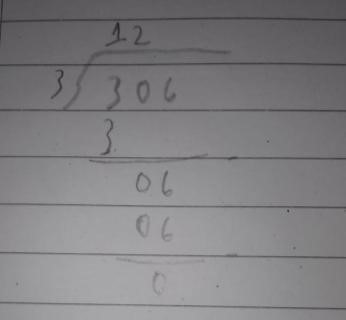 12
3 306
3
06
06
0